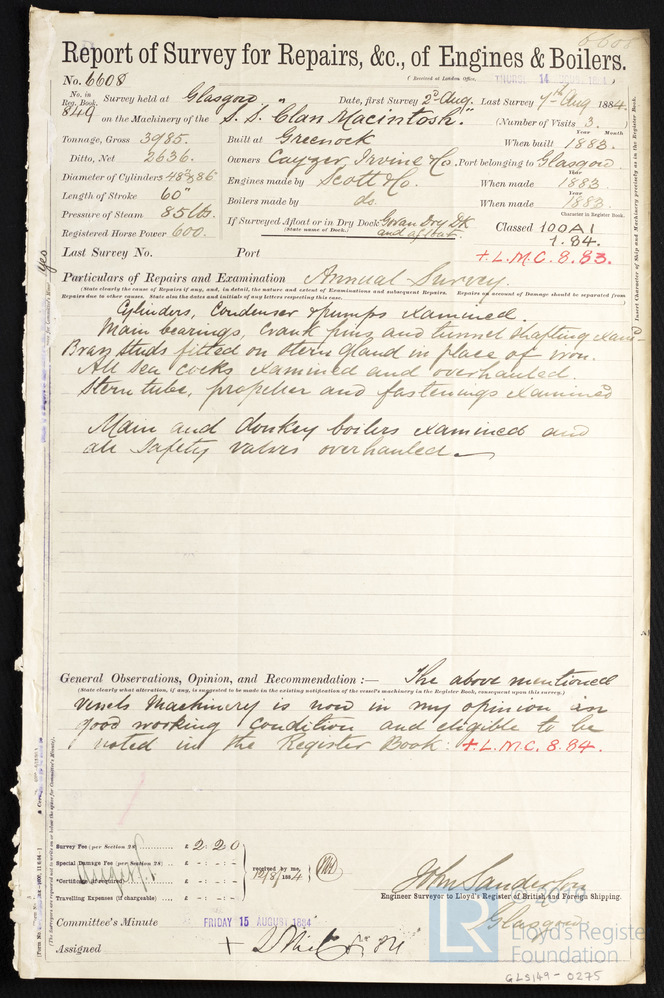 6608
Report of Survey for Repairs, &c., of Engines & Boilers.
No. 6608 (Received at London Office, THURS. 14 AUGUST 1884)
No. in Reg. Book. Survey held at Glasgow Date, first Survey 2d Aug. Last Survey 7th Aug 1884.
849 on the Machinery of the S.S. "Clan Macintosh." (Number of Visits 3.)
Year Month
Tonnage, Gross 3985. Built at Greenock When built 1883.
Ditto, Net 2636. Owners Cayzer, Irvine & Co. Port belonging to Glasgow
Year
Diameter of Cylinders 48 & 86 Engines made by Scott & Co. When made 1883
Length of Stroke 60" Boilers made by do. When made 1883
Year
Pressure of Steam 85 lbs. If Surveyed Afloat or in Dry Dock Govan Dry Dk
(State name of Dock.) and afloat.
Character in Register Book.
Classed 100A1
1.84.
Registered Horse Power 600.
Last Survey No. Port + L.M.C. 8.83.
Particulars of Repairs and Examination Annual Survey.
(State clearly the cause of Repairs if any, and, in detail, the nature and extent of Examinations and subsequent Repairs. Repairs on account of Damage should be separated from
Repairs due to other causes. State also the dates and initials of any letters respecting this case.
Cylinders, Condenser & pumps examined.
Main bearings, crank pins and tunnel shafting exam-
Brass studs fitted on stern gland in place of iron.
All sea cocks examined and overhauled
Stern tube, propeller and fastenings examined
Main and donkey boilers examined and
all safety valves overhauled.
General Observations, Opinion, and Recommendation :— The above mentioned
(State clearly what alteration, if any, is suggested to be made in the existing notification of the vessel's machinery in the Register Book, consequent upon this survey.)
vessels Machinery is now in my opinion in
good working condition and eligible to be
noted in the Register Book: + L.M.C. 8.84.
Survey Fee (per Section 28) £ 2 . 2 . 0
Special Damage Fee (per Section 28) £ - : - : -
received by me,
12/8/1884
*Certificate (if required) £ - : - : -
Travelling Expenses (if chargeable) £ - : - : -
John Sanderson
Engineer Surveyor to Lloyd's Register of British and Foreign Shipping.
Glasgow
Committee's Minute FRIDAY 15 AUGUST 1884
Assigned +
Yes
Insert Character of Ship and Machinery precisely as in the Register Book.
LR
Lloyd's Register
Foundation
GLS149-0275